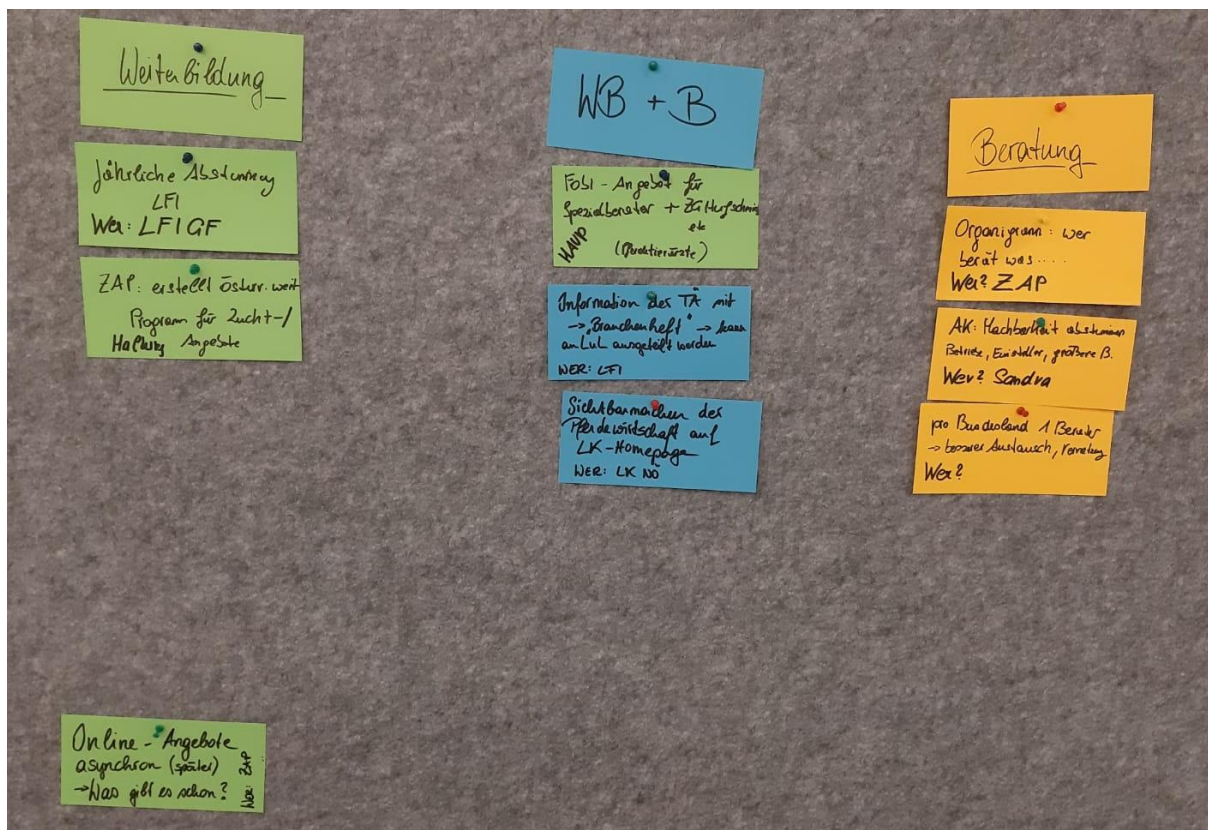 Weiterbildung
Jährliche Abstimmung
LFI
Wer: LFI GF
ZAP: erstellt österr. weit
Program für Zucht-/
Haltung Angebote
Online - Angebote
asynchron (später)
→ Was gibt es schon?
Wer: ZAP
WB + B
FoBi - Angebot für
Spezialberater + ZG Hufschmie
etc
HAUP
Information des TÄ mit
→ "Branchenheft" → kann
an LuL ausgeteilt werden
WER: LFI
Sichtbarmachen der
Pferdewirtschaft auf
LK-Homepage
WER: LK NÖ
Beratung
Organigramm: wer
berät was....
Wer? ZAP
AK: Machbarkeit abstimmen
Betriebe, Einsteller, größere B.
Wer? Sandra
pro Bundesland 1 Berater
→ besserer Austausch, Vernetzung
Wer?